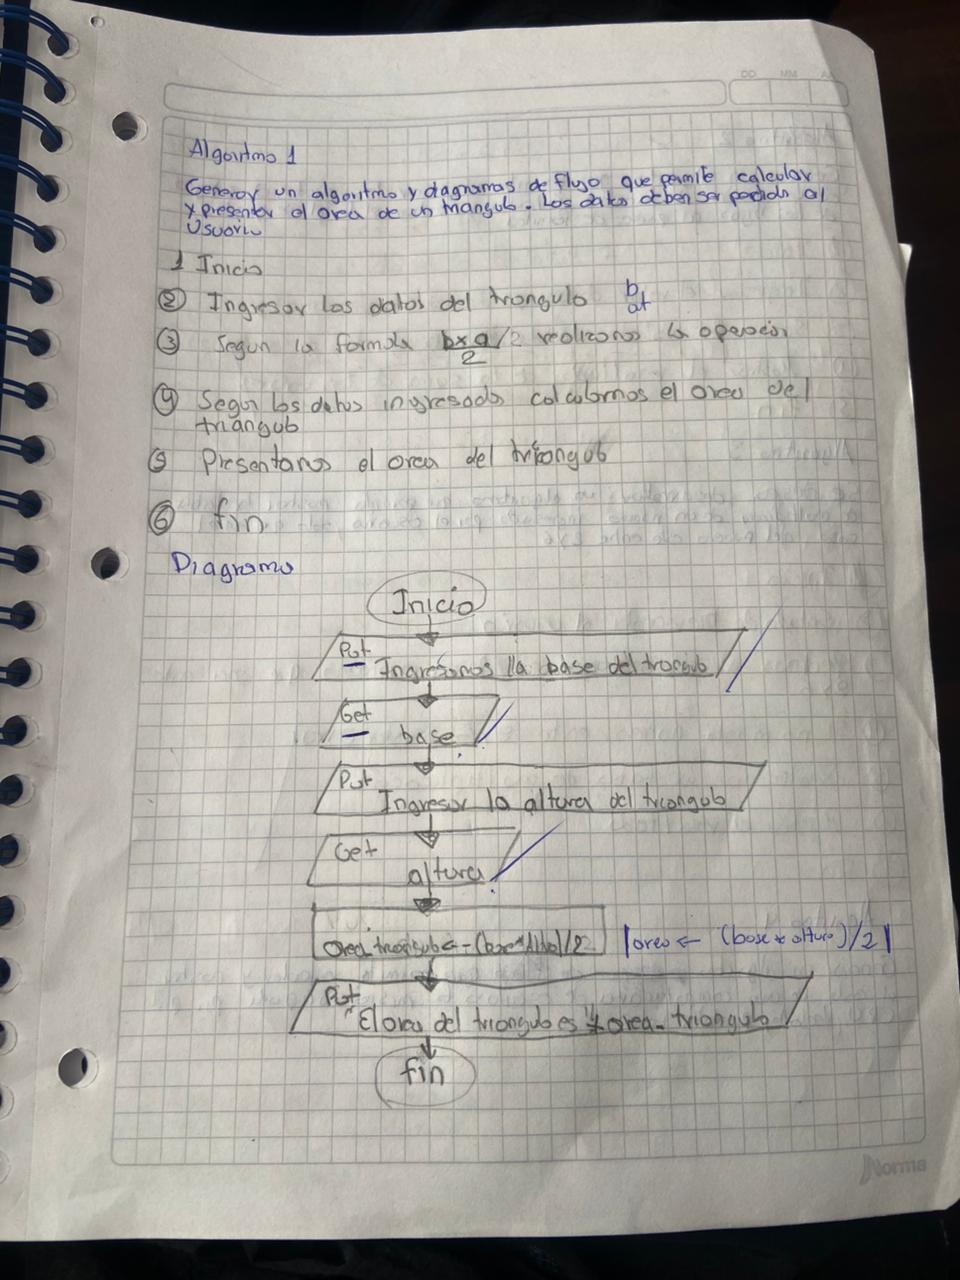 DD MM AA
Algoritmo 1
Generar un algoritmo y diagramas de flujo que permite calcular
y presentar el area de un triangulo. Los datos deben ser pedido al
Usuario
1 Inicio
② Ingresar los datos del triangulo b
at
③ Segun la formula bxa/2 realizamos la operacion
2
④ Segun los datos ingresado calculamos el area del
triangulo
⑤ Presentamos el area del triangulo
⑥ fin
Diagrama
Inicio
Put
Ingresamos la base del triangulo
Get
base
Put
Ingresar la altura del triangulo
Get
altura
area_triangulo <- (base*altura)/2 |area <- (base * altura)/2|
Put
"El area del triangulo es" + area_triangulo
fin
Norma